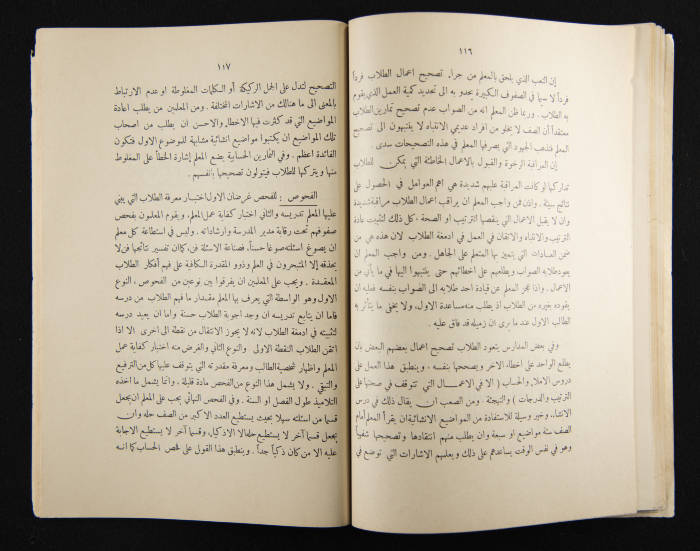 ١١٦
إن التعب الذي يلحق بالمعلم من جراء تصحيح اعمال الطلاب فرداً
فرداً لا سيما في الصفوف الكبيرة يحدو به الى تحديد كمية العمل الذي يقوم
به الطلاب. وربما ظن المعلم انه من الصواب عدم تصحيح تمارين الطلاب
معتقداً أن الصف لا يخلو من افراد عديمي الانتباه لا يتنبهون الى تصحيح
المعلم فتذهب الجهود التي يصرفها المعلم في هذه التصحيحات سدى.
ان المراقبة الرخوة والقبول بالاعمال الخاطئة التي يمكن للطلاب
تداركها لو كانت المراقبة عليهم شديدة هي اهم العوامل في الحصول على
نتائج سيئة. واذن فمن واجب المعلم ان يراقب اعمال الطلاب مراقبة شديدة
وان لا يقبل الاعمال التي ينقصها الترتيب او الصحة، كل ذلك لتثبيت عادة
الترتيب والانتباه والاتقان في العمل في ادمغة الطلاب لان هذه هي من
ضمن العادات التي يتميز بها المتعلم على الجاهل. ومن واجب المعلم ان
يعود طلابه الصواب ويطلعهم على اخطائهم حتى يتنبهوا اليها في ما يأتي من
الاعمال. واذا عجز المعلم عن قيادة احد طلابه الى الصواب بنفسه فعليه ان
يقوده بغيره من الطلاب اذ يطلب منه مساعدة الاول، ولا يخفى ما يتأثر به
الطالب الاول عند ما يرى ان زميله قد فاق عليه.
وفي بعض المدارس يتعود الطلاب تصحيح اعمال بعضهم البعض بان
يطلع الواحد على اخطاء الاخر ويصححها بنفسه، وينطبق هذا العمل على
دروس الاملاء والحساب (الا في الاعمال التي تتوقف في صحتها على
الترتيب والدرجات) والتهجئة. ومن الصعب ان يقال ذلك في درس
الانشاء، وخير وسيلة للاستفادة من المواضيع الانشائية ان يقرأ المعلم أمام
الصف ستة مواضيع او سبعة وان يطلب منهم انتقادها وتصحيحها شفهياً
وهو في نفس الوقت يساعدهم على ذلك ويعلمهم الاشارات التي توضع في
١١٧
التصحيح لتدل على الجمل الركيكة أو الكلمات المغلوطة او عدم الارتباط
بالمعنى الى ما هنالك من الاشارات المختلفة. ومن المعلمين من يطلب اعادة
المواضيع التي قد كثرت فيها الاخطاء، والاحسن ان يطلب من اصحاب
تلك المواضيع ان يكتبوا مواضيع انشائية مشابهة للموضوع الاول فتكون
الفائدة اعظم. وفي التمارين الحسابية يضع المعلم إشارة الخطأ على المغلوط
منها ويتركها للطلاب فيتولون تصحيحها بأنفسهم.
الفحوص: للفحص غرضان الاول اختبار معرفة الطلاب التي يبني
عليها المعلم تدريسه والثاني اختبار كفاية عمل المعلم، ويقوم المعلمون بفحص
صفوفهم تحت رقابة مدير المدرسة وارشاداته. وليس في استطاعة كل معلم
ان يصوغ اسئلته صوغاً حسناً، فصناعة الاسئلة فن، كما ان تفسير نتائجها فن لا
يحذقه إلا المتبحرون في العلم وذوو المقدرة الكافية على فهم أفكار الطلاب
المعقدة. ويجب على المعلمين ان يفرقوا بين نوعين من الفحوص، النوع
الاول وهو الواسطة التي يعرف بها المعلم مقدار ما فهم الطلاب من درسه
فاما ان يتابع تدريسه ان وجد اجوبة الطلاب حسنة واما ان يعيد درسه
لتثبيته في ادمغة الطلاب لانه لا يجوز الانتقال من نقطة الى اخرى الا اذا
اتقن الطلاب النقطة الاولى والنوع الثاني والغرض منه اختبار كفاية عمل
المعلم واظهار شخصية الطالب ومعرفة مقدرته التي يتوقف عليها كل من الترفيع
والتبقي. ولا يشمل هذا النوع من الفحص مادة قليلة، وانما يشمل ما اخذه
التلاميذ طول الفصل او السنة. وفي الفحص النهائي يجب على المعلم ان يجعل
قسماً من اسئلته سهلا بحيث يستطيع العدد الاكبر من الصف حله وان
يجعل قسما آخر لا يستطيع حله الا الاذكياء، وقسما آخر لا يستطيع الاجابة
عليه الا من كان ذكياً جداً. وينطبق هذا القول على فحص الحساب كما انه